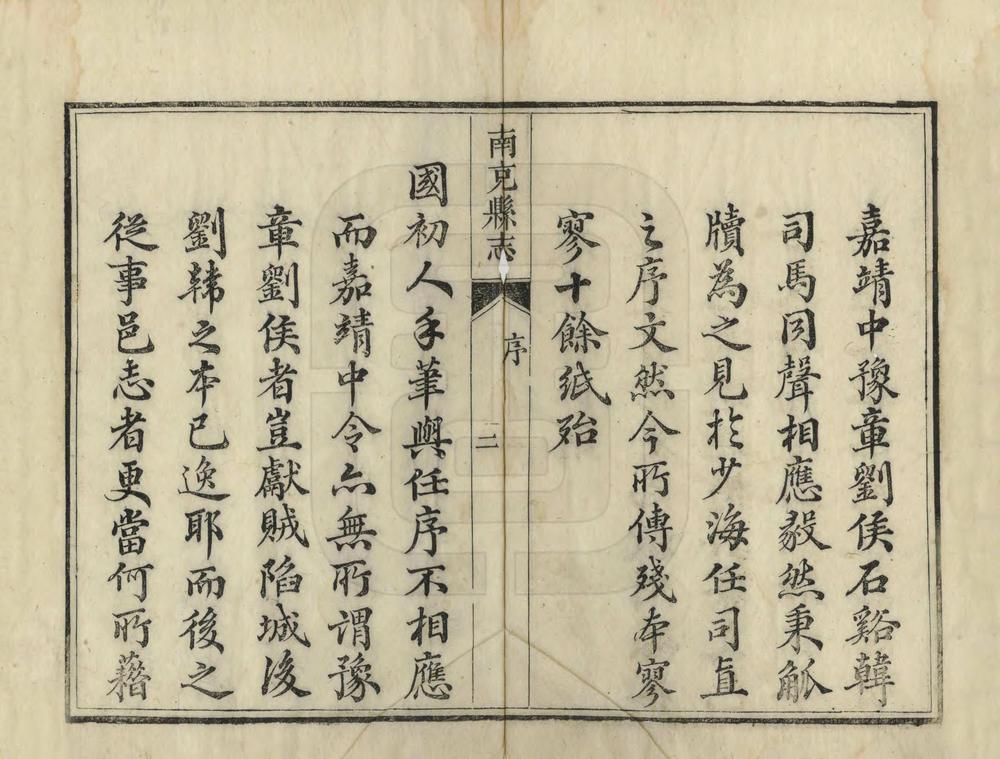 嘉靖中豫章劉侯石谿韓
司馬同聲相應毅然秉觚
牘為之見扵少海任司直
之序文然今所傳殘本寥
寥十餘紙殆
南充縣志
序
二
國初人手筆與任序不相應
而嘉靖中令亦無所謂豫
章劉侯者豈獻賊陷城後
劉韓之本已逸耶而後之
從事邑志者更當何所藉